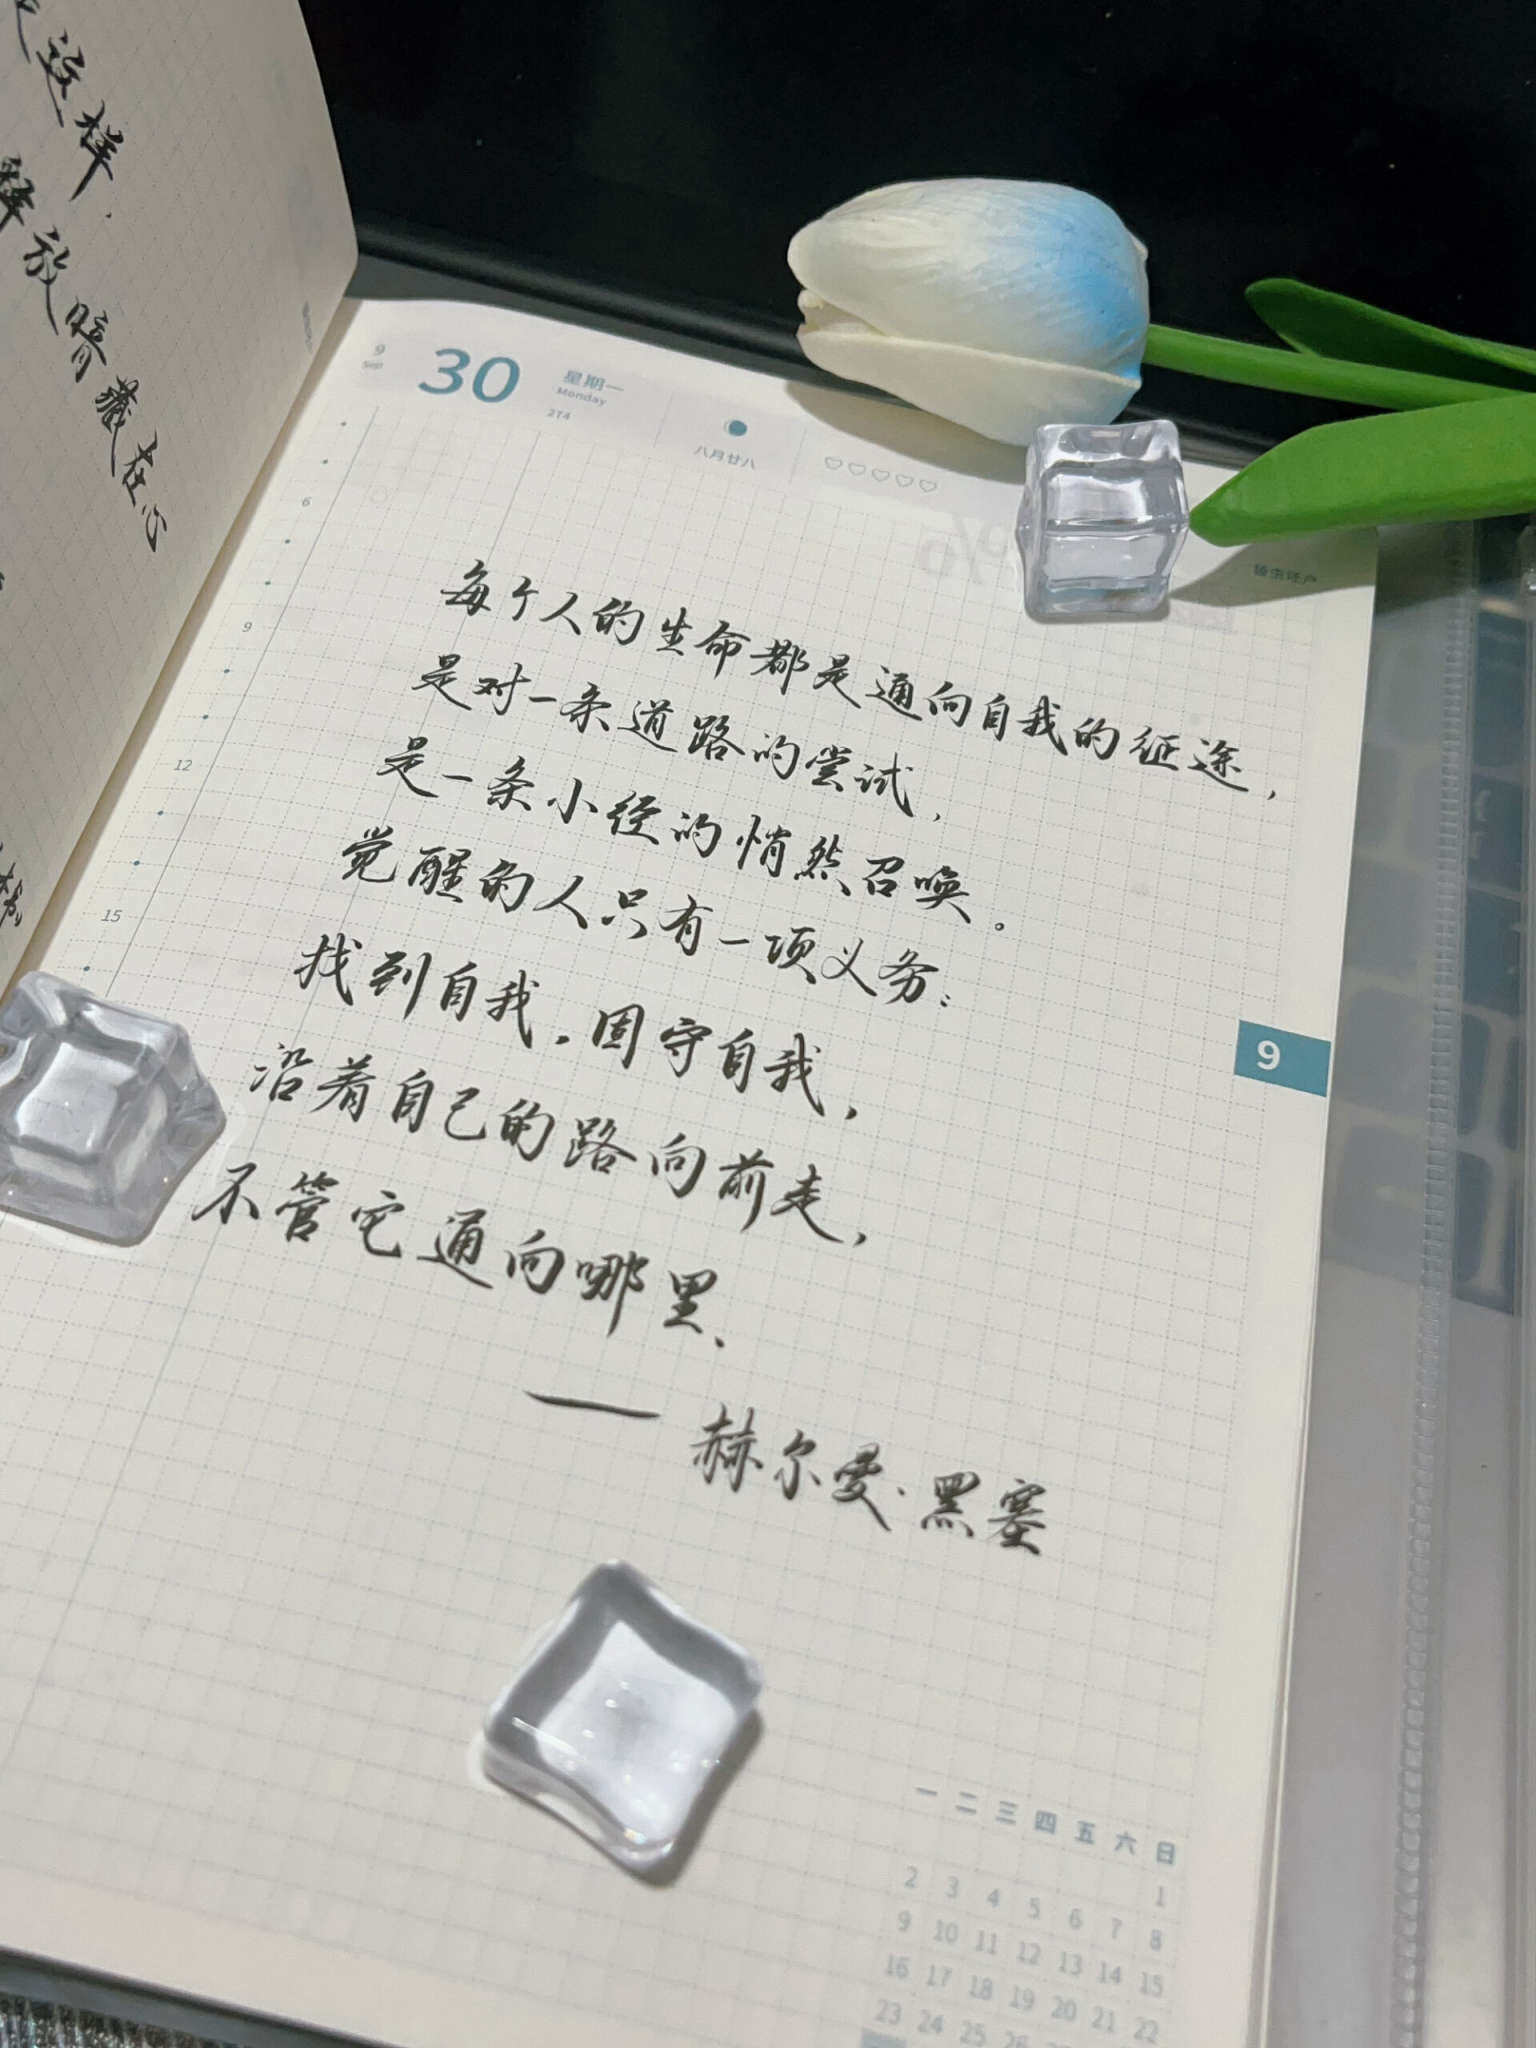 这样
释放暗藏在心
9
Sep
30
星期一
Monday
274
八月廿八
6
9
12
15
每个人的生命都是通向自我的征途,
是对一条道路的尝试,
是一条小径的悄然召唤。
觉醒的人只有一项义务:
找到自我,固守自我,
沿着自己的路向前走,
不管它通向哪里.
——赫尔曼·黑塞
9
一 二 三 四 五 六 日
1
2 3 4 5 6 7 8
9 10 11 12 13 14 15
16 17 18 19 20 21 22
23 24 25 26